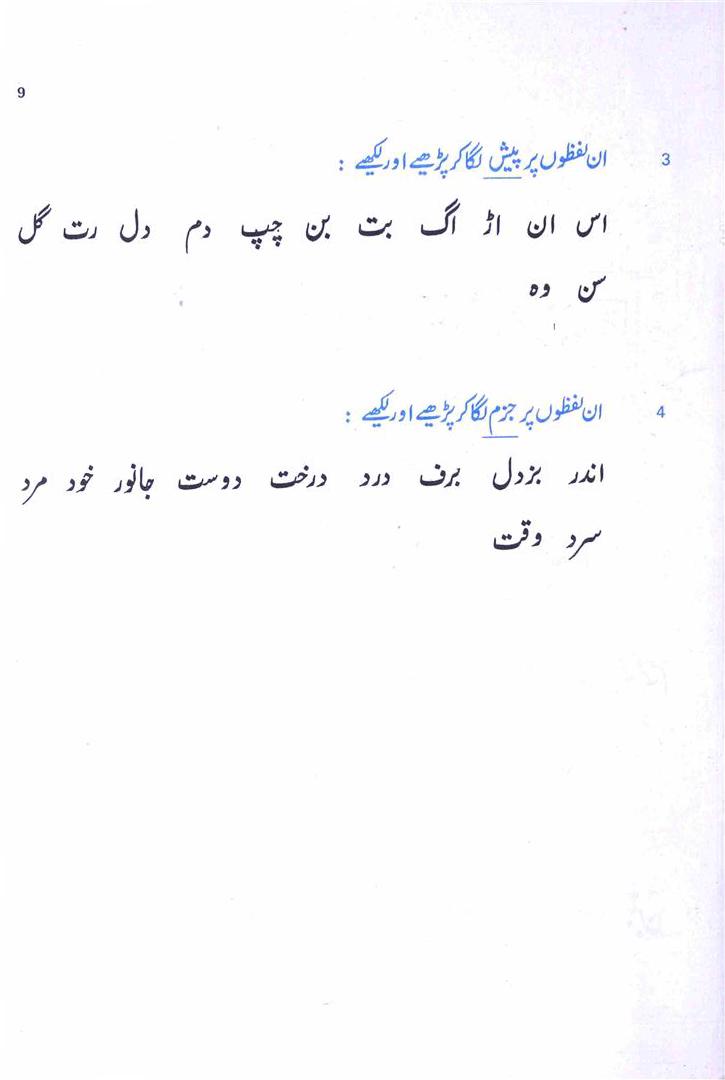 9
3 ان لفظوں پر پیش لگا کر پڑھیے اور لکھیے :
اس ان اڑ اگ بت بن چپ دم دل رت گل
سن وہ
4 ان لفظوں پر جزم لگا کر پڑھیے اور لکھیے :
اندر بزدل برف درد درخت دوست جانور خود مرد
سرد وقت